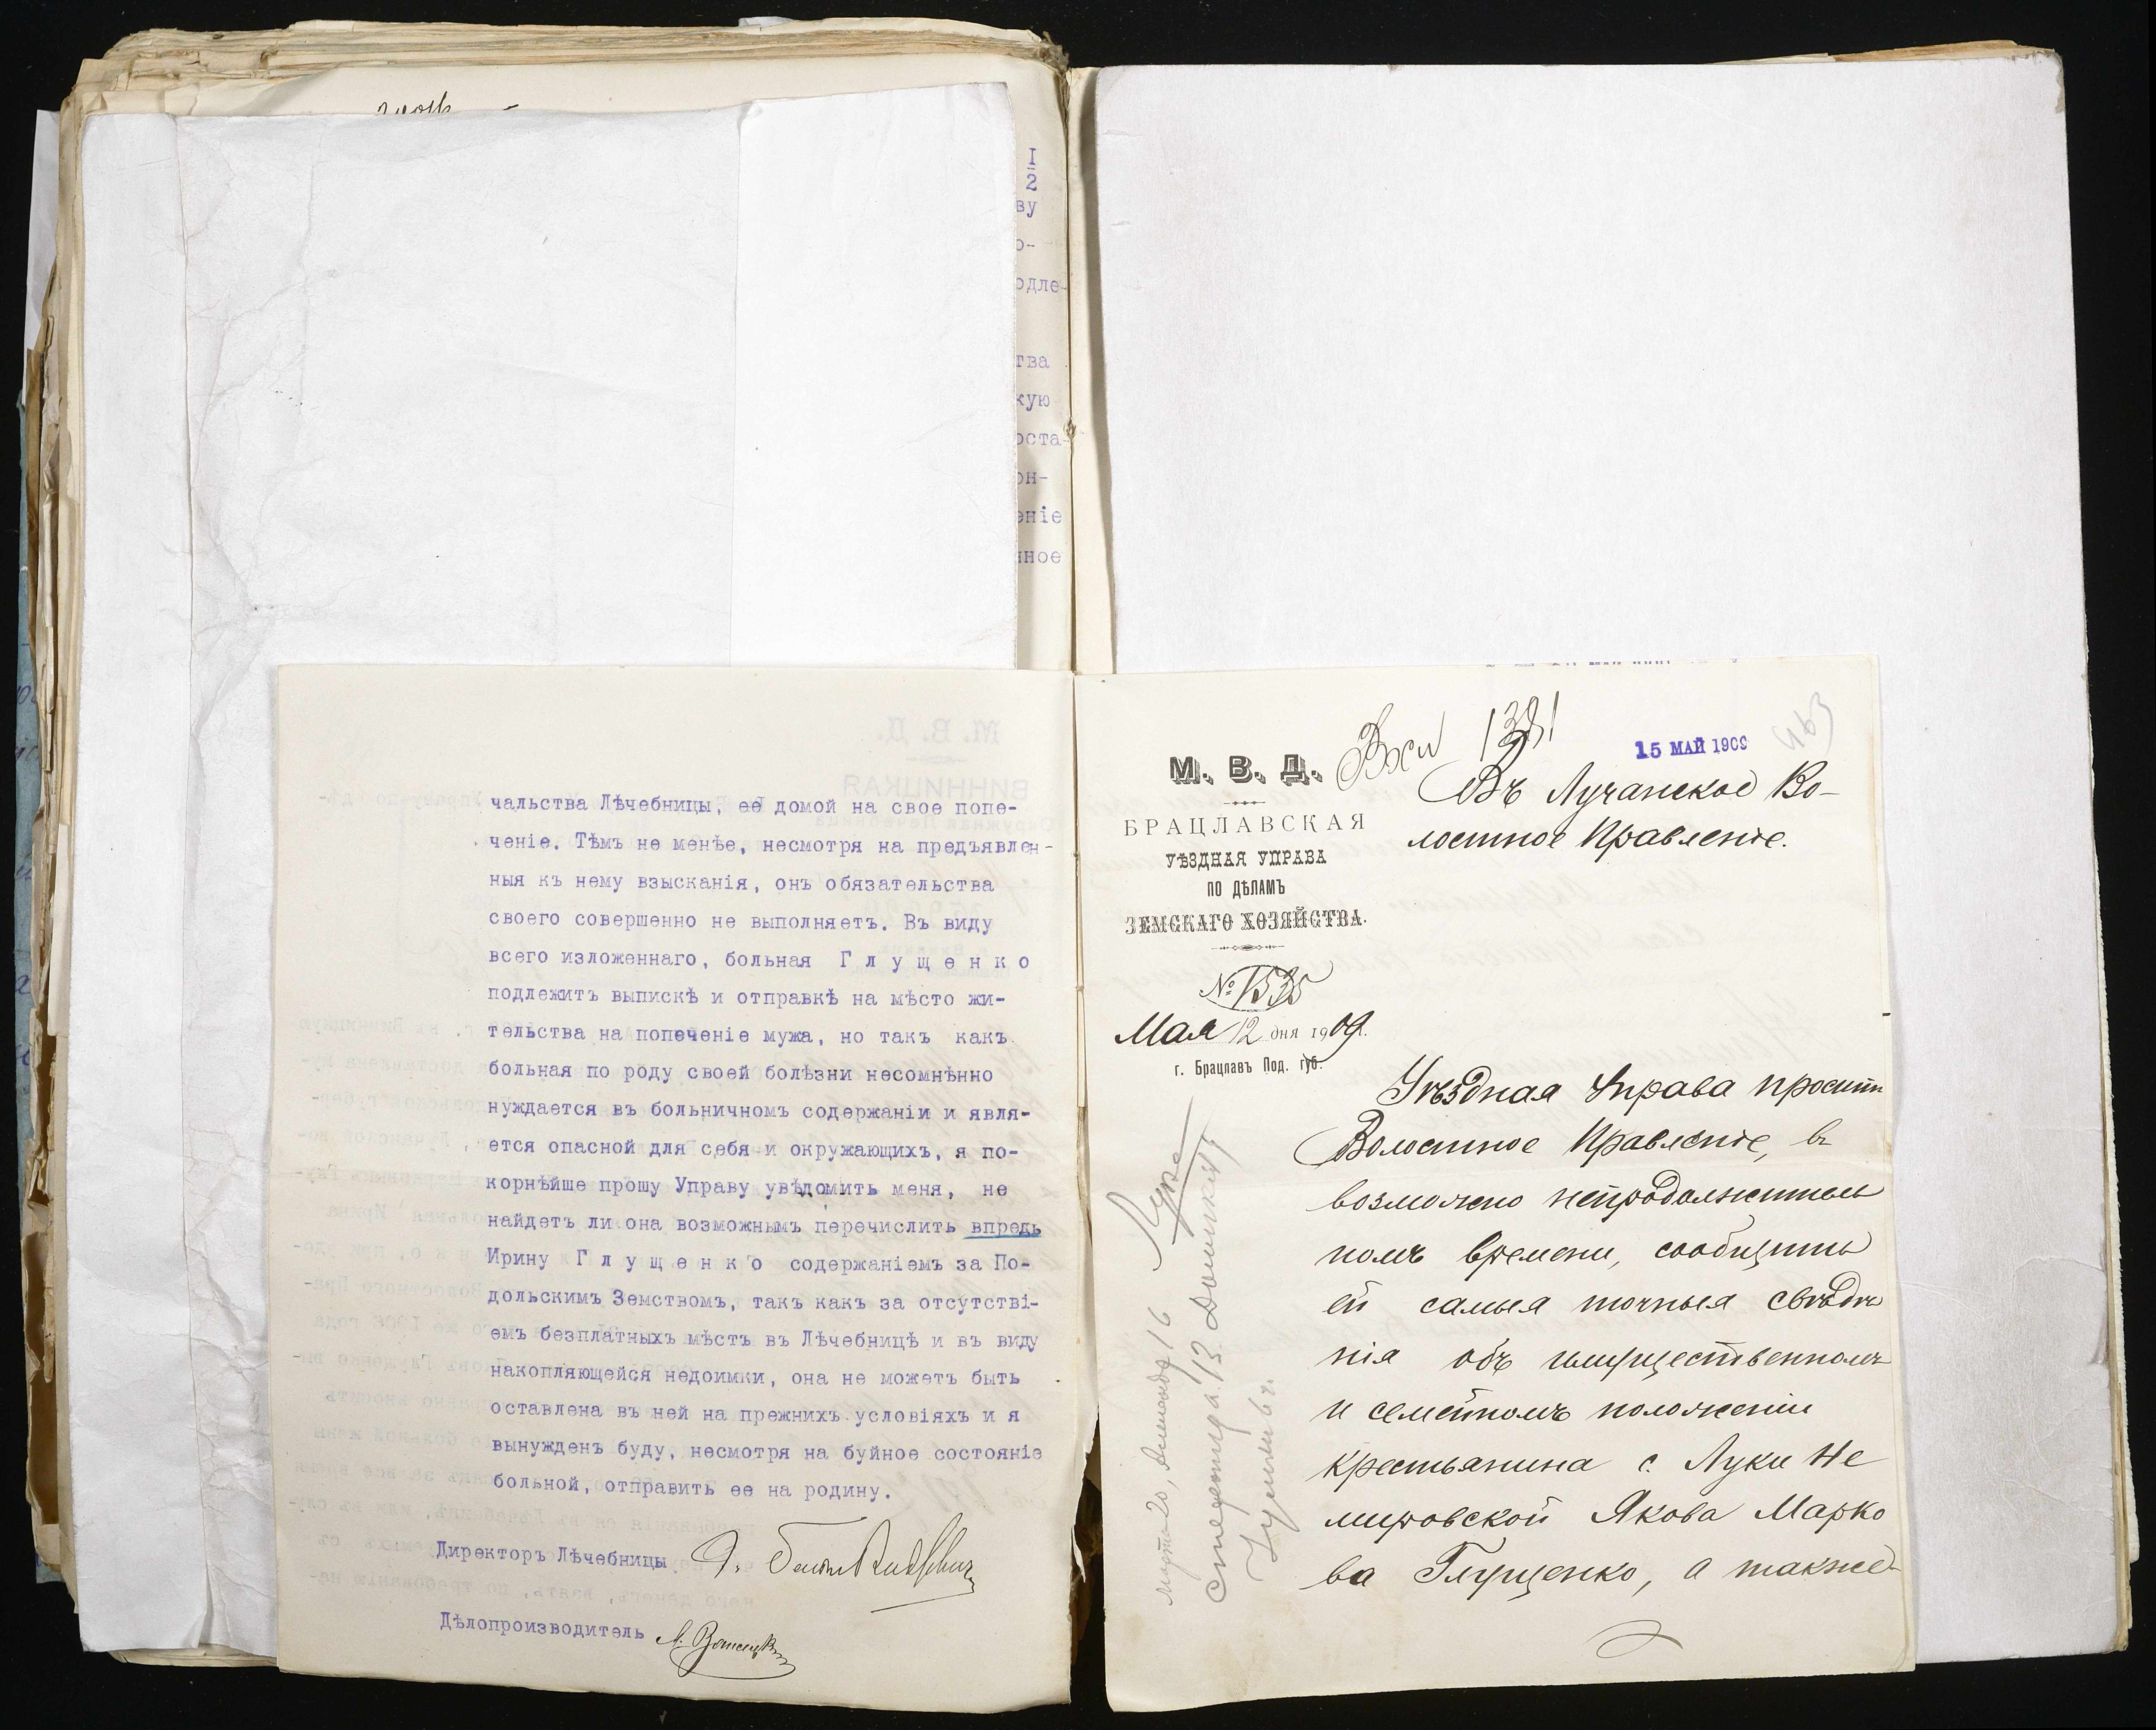 I
2
ву
о-
одле-
тва
кую
оста-
он-
еніе
нное
чальства Лѣчебницы, ее домой на свое попе-
ченіе. Тѣмъ не менѣе, несмотря на предъявлен-
ныя къ нему взысканія, онъ обязательства
своего совершенно не выполняетъ. Въ виду
всего изложеннаго, больная Г л у щ е н к о
подлежитъ выпискѣ и отправкѣ на мѣсто жи-
тельства на попеченіе мужа, но такъ какъ
больная по роду своей болѣзни несомнѣнно
нуждается въ больничномъ содержаніи и явля-
ется опасной для себя и окружающихъ, я по-
корнѣйше прошу Управу увѣдомить меня, не
найдетъ ли она возможнымъ перечислить впредь
Ирину Г л у щ е н к о содержаніемъ за По-
дольскимъ Земствомъ, такъ какъ за отсутстві-
емъ безплатныхъ мѣстъ въ Лѣчебницѣ и въ виду
накопляющейся недоимки, она не можетъ быть
оставлена въ ней на прежнихъ условіяхъ и я
вынужденъ буду, несмотря на буйное состояніе
больной, отправить ее на родину.
Директоръ Лѣчебницы
Дѣлопроизводитель
М. В. Д.
БРАЦЛАВСКАЯ
УѢЗДНАЯ УПРАВА
ПО ДѢЛАМЪ
ЗЕМСКАГО ХОЗЯЙСТВА.
№ 1535
Мая 12 дня 1909 г.
г. Брацлавъ Под. губ.
15 МАЙ 1909
Въ Лучанское Во-
лостное Правленіе.
Уѣздная Управа проситъ
Волостное Правленіе, въ
возможно непродолжитель
номъ времени, сообщить
ей самыя точныя свѣдѣ
нія объ имущественномъ
и семейномъ положеніи
крестьянина с. Луки Не
мировской Якова Марко
ва Глущенко, а также